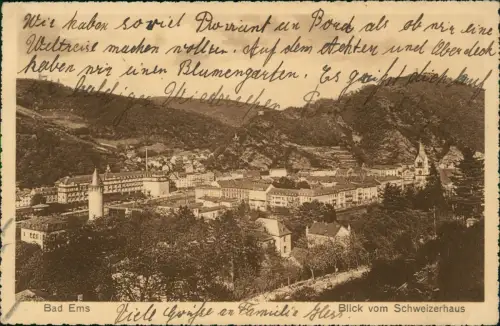 Wir haben soviel Proviant an Bord als ob wir eine
Weltreise machen wollten. Auf dem Achter und Oberdeck
haben wir einen Blumengarten. Es grüßt dich
baldigen Wiedersehen
Bad Ems Blick vom Schweizerhaus
Viele Grüße an Familie